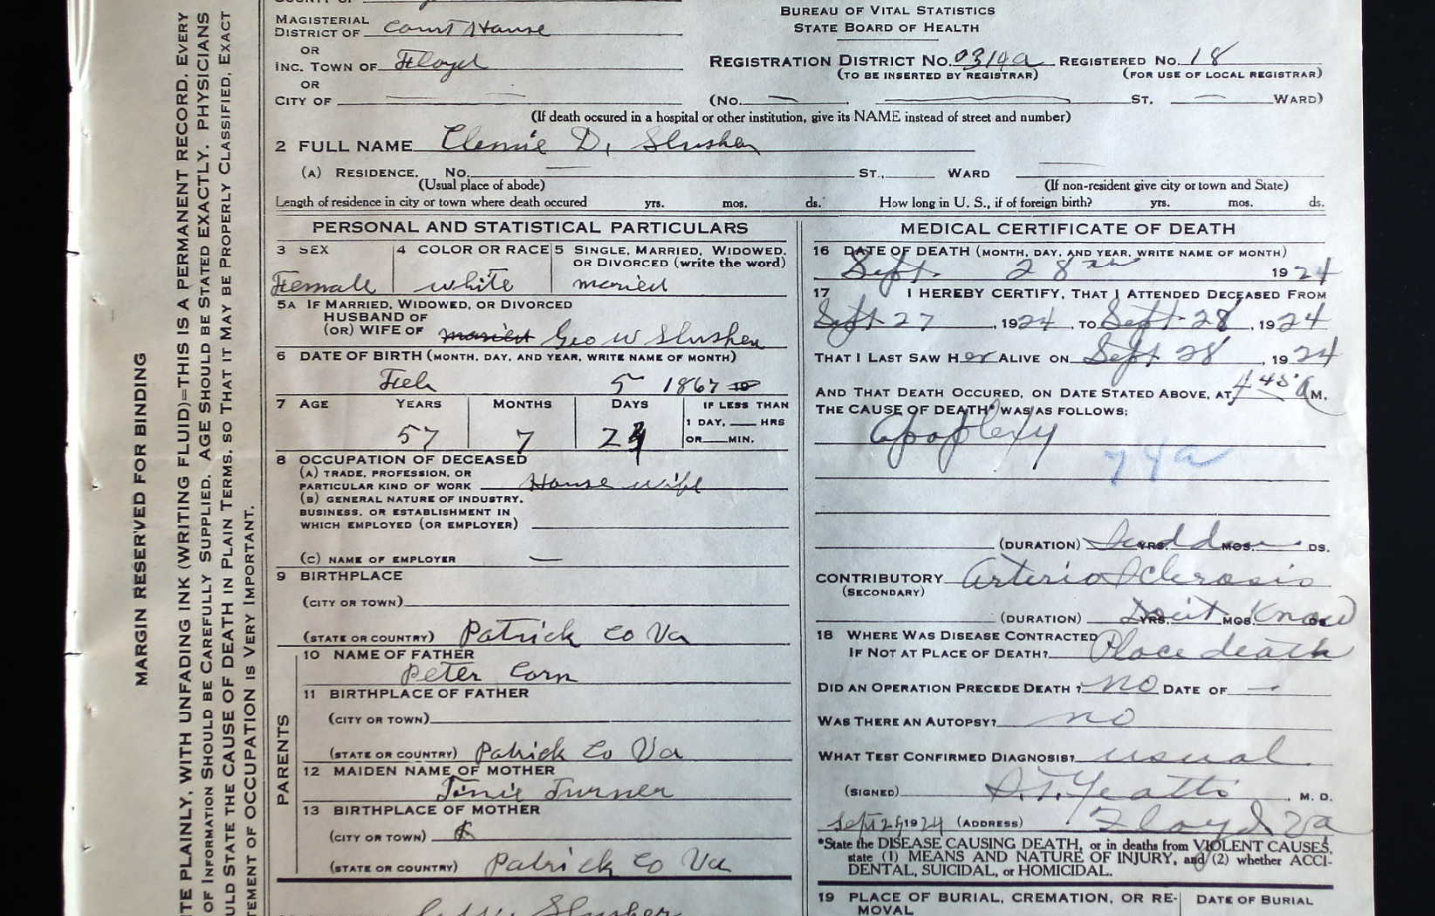 MARGIN RESERVED FOR BINDING
TE PLAINLY, WITH UNFADING INK (WRITING FLUID)=THIS IS A PERMANENT RECORD. EVERY
OF INFORMATION SHOULD BE CAREFULLY SUPPLIED. AGE SHOULD BE STATED EXACTLY. PHYSICIANS
ULD STATE THE CAUSE OF DEATH IN PLAIN TERMS, SO THAT IT MAY BE PROPERLY CLASSIFIED. EXACT
TEMENT OF OCCUPATION IS VERY IMPORTANT.
BUREAU OF VITAL STATISTICS
STATE BOARD OF HEALTH
MAGISTERIAL
DISTRICT OF Court House
OR
INC. TOWN OF Floyd
REGISTRATION DISTRICT NO. 0314a REGISTERED NO. 18
(TO BE INSERTED BY REGISTRAR) (FOR USE OF LOCAL REGISTRAR)
OR
CITY OF (NO. ST. WARD)
(If death occured in a hospital or other institution, give its NAME instead of street and number)
2 FULL NAME Clemie D. Slusher
(A) RESIDENCE. NO. ST., WARD
(Usual place of abode) (If non-resident give city or town and State)
Length of residence in city or town where death occured yrs. mos. ds. How long in U. S., if of foreign birth? yrs. mos. ds.
PERSONAL AND STATISTICAL PARTICULARS
3 SEX 4 COLOR OR RACE 5 SINGLE, MARRIED, WIDOWED,
OR DIVORCED (write the word)
Female white maried
5A IF MARRIED, WIDOWED, OR DIVORCED
HUSBAND OF
(OR) WIFE OF Geo W Slusher
6 DATE OF BIRTH (MONTH, DAY, AND YEAR, WRITE NAME OF MONTH)
Feb 5 1867
7 AGE YEARS MONTHS DAYS IF LESS THAN
1 DAY, HRS
OR MIN.
57 7
8 OCCUPATION OF DECEASED
(A) TRADE, PROFESSION, OR
PARTICULAR KIND OF WORK House wife
(B) GENERAL NATURE OF INDUSTRY,
BUSINESS, OR ESTABLISHMENT IN
WHICH EMPLOYED (OR EMPLOYER)
(C) NAME OF EMPLOYER
9 BIRTHPLACE
(CITY OR TOWN)
(STATE OR COUNTRY) Patrick Co Va
PARENTS
10 NAME OF FATHER
Peter Corn
11 BIRTHPLACE OF FATHER
(CITY OR TOWN)
(STATE OR COUNTRY) Patrick Co Va
12 MAIDEN NAME OF MOTHER
Turner
13 BIRTHPLACE OF MOTHER
(CITY OR TOWN)
(STATE OR COUNTRY) Patrick Co Va
Slusher
MEDICAL CERTIFICATE OF DEATH
16 DATE OF DEATH (MONTH, DAY, AND YEAR, WRITE NAME OF MONTH)
Sept. 28th 1924
17 I HEREBY CERTIFY, THAT I ATTENDED DECEASED FROM
Sept 27, 1924, TO Sept 28, 1924
THAT I LAST SAW Her ALIVE ON Sept 28, 1924
AND THAT DEATH OCCURED, ON DATE STATED ABOVE, AT 4 45 A M.
THE CAUSE OF DEATH* WAS AS FOLLOWS:
Apoplexy
74a
(DURATION) Sudden YRS. MOS. DS.
CONTRIBUTORY Arterio Sclerosis
(SECONDARY)
(DURATION) Don't YRS. MOS. Know DS.
18 WHERE WAS DISEASE CONTRACTED
IF NOT AT PLACE OF DEATH? Place death
DID AN OPERATION PRECEDE DEATH? no DATE OF
WAS THERE AN AUTOPSY? no
WHAT TEST CONFIRMED DIAGNOSIS? usual
(SIGNED) M. D.
1924 (ADDRESS) Floyd Va
*State the DISEASE CAUSING DEATH, or in deaths from VIOLENT CAUSES,
state (1) MEANS AND NATURE OF INJURY, and (2) whether ACCI-
DENTAL, SUICIDAL, or HOMICIDAL.
19 PLACE OF BURIAL, CREMATION, OR RE-
MOVAL
DATE OF BURIAL